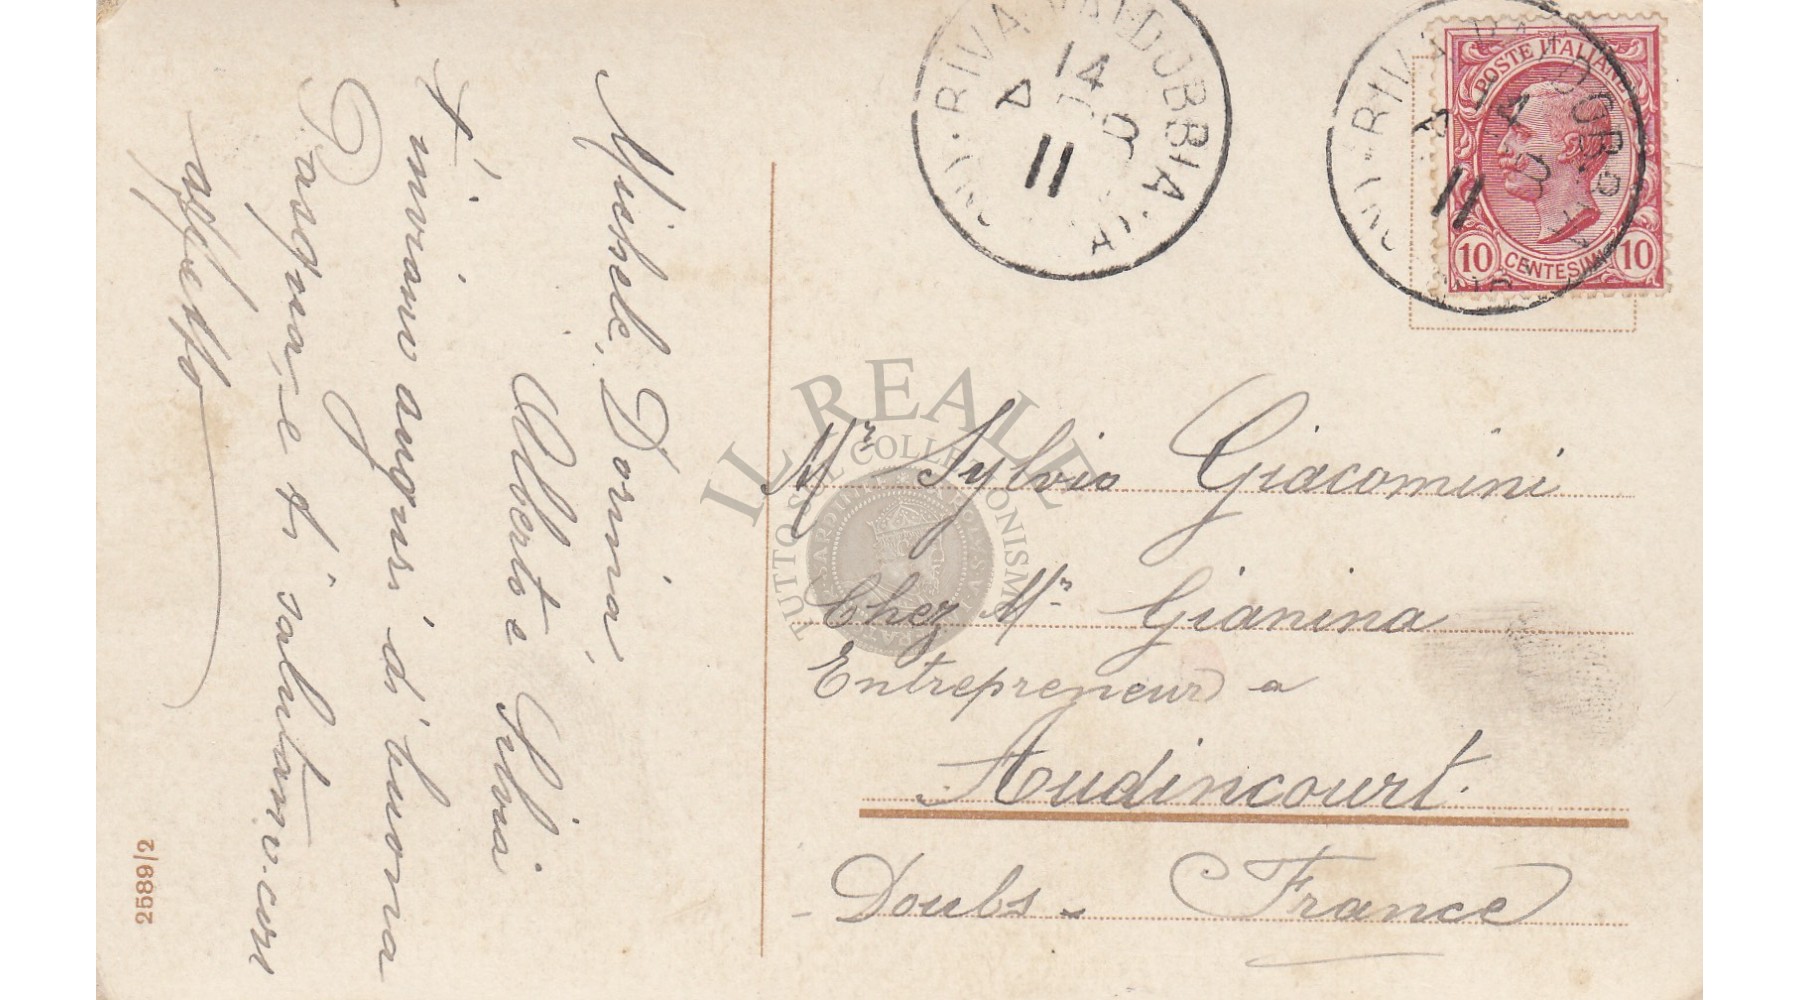 Michele, Dorina,
Alberto e Silvia
t'inviano auguri di buona
Pasqua, e ti salutano con
affetto
2589/2
RIVA VALDOBBIA
14
4
11
RIVA VALDOBBIA
11
POSTE ITALIANE
10 CENTESIMI 10
IL REALE
TUTTO SUL COLLEZIONISMO
Mr Sylvio Giacomini
Chez Mr Gianina
Entrepreneur a
Audincourt.
- Doubs - France